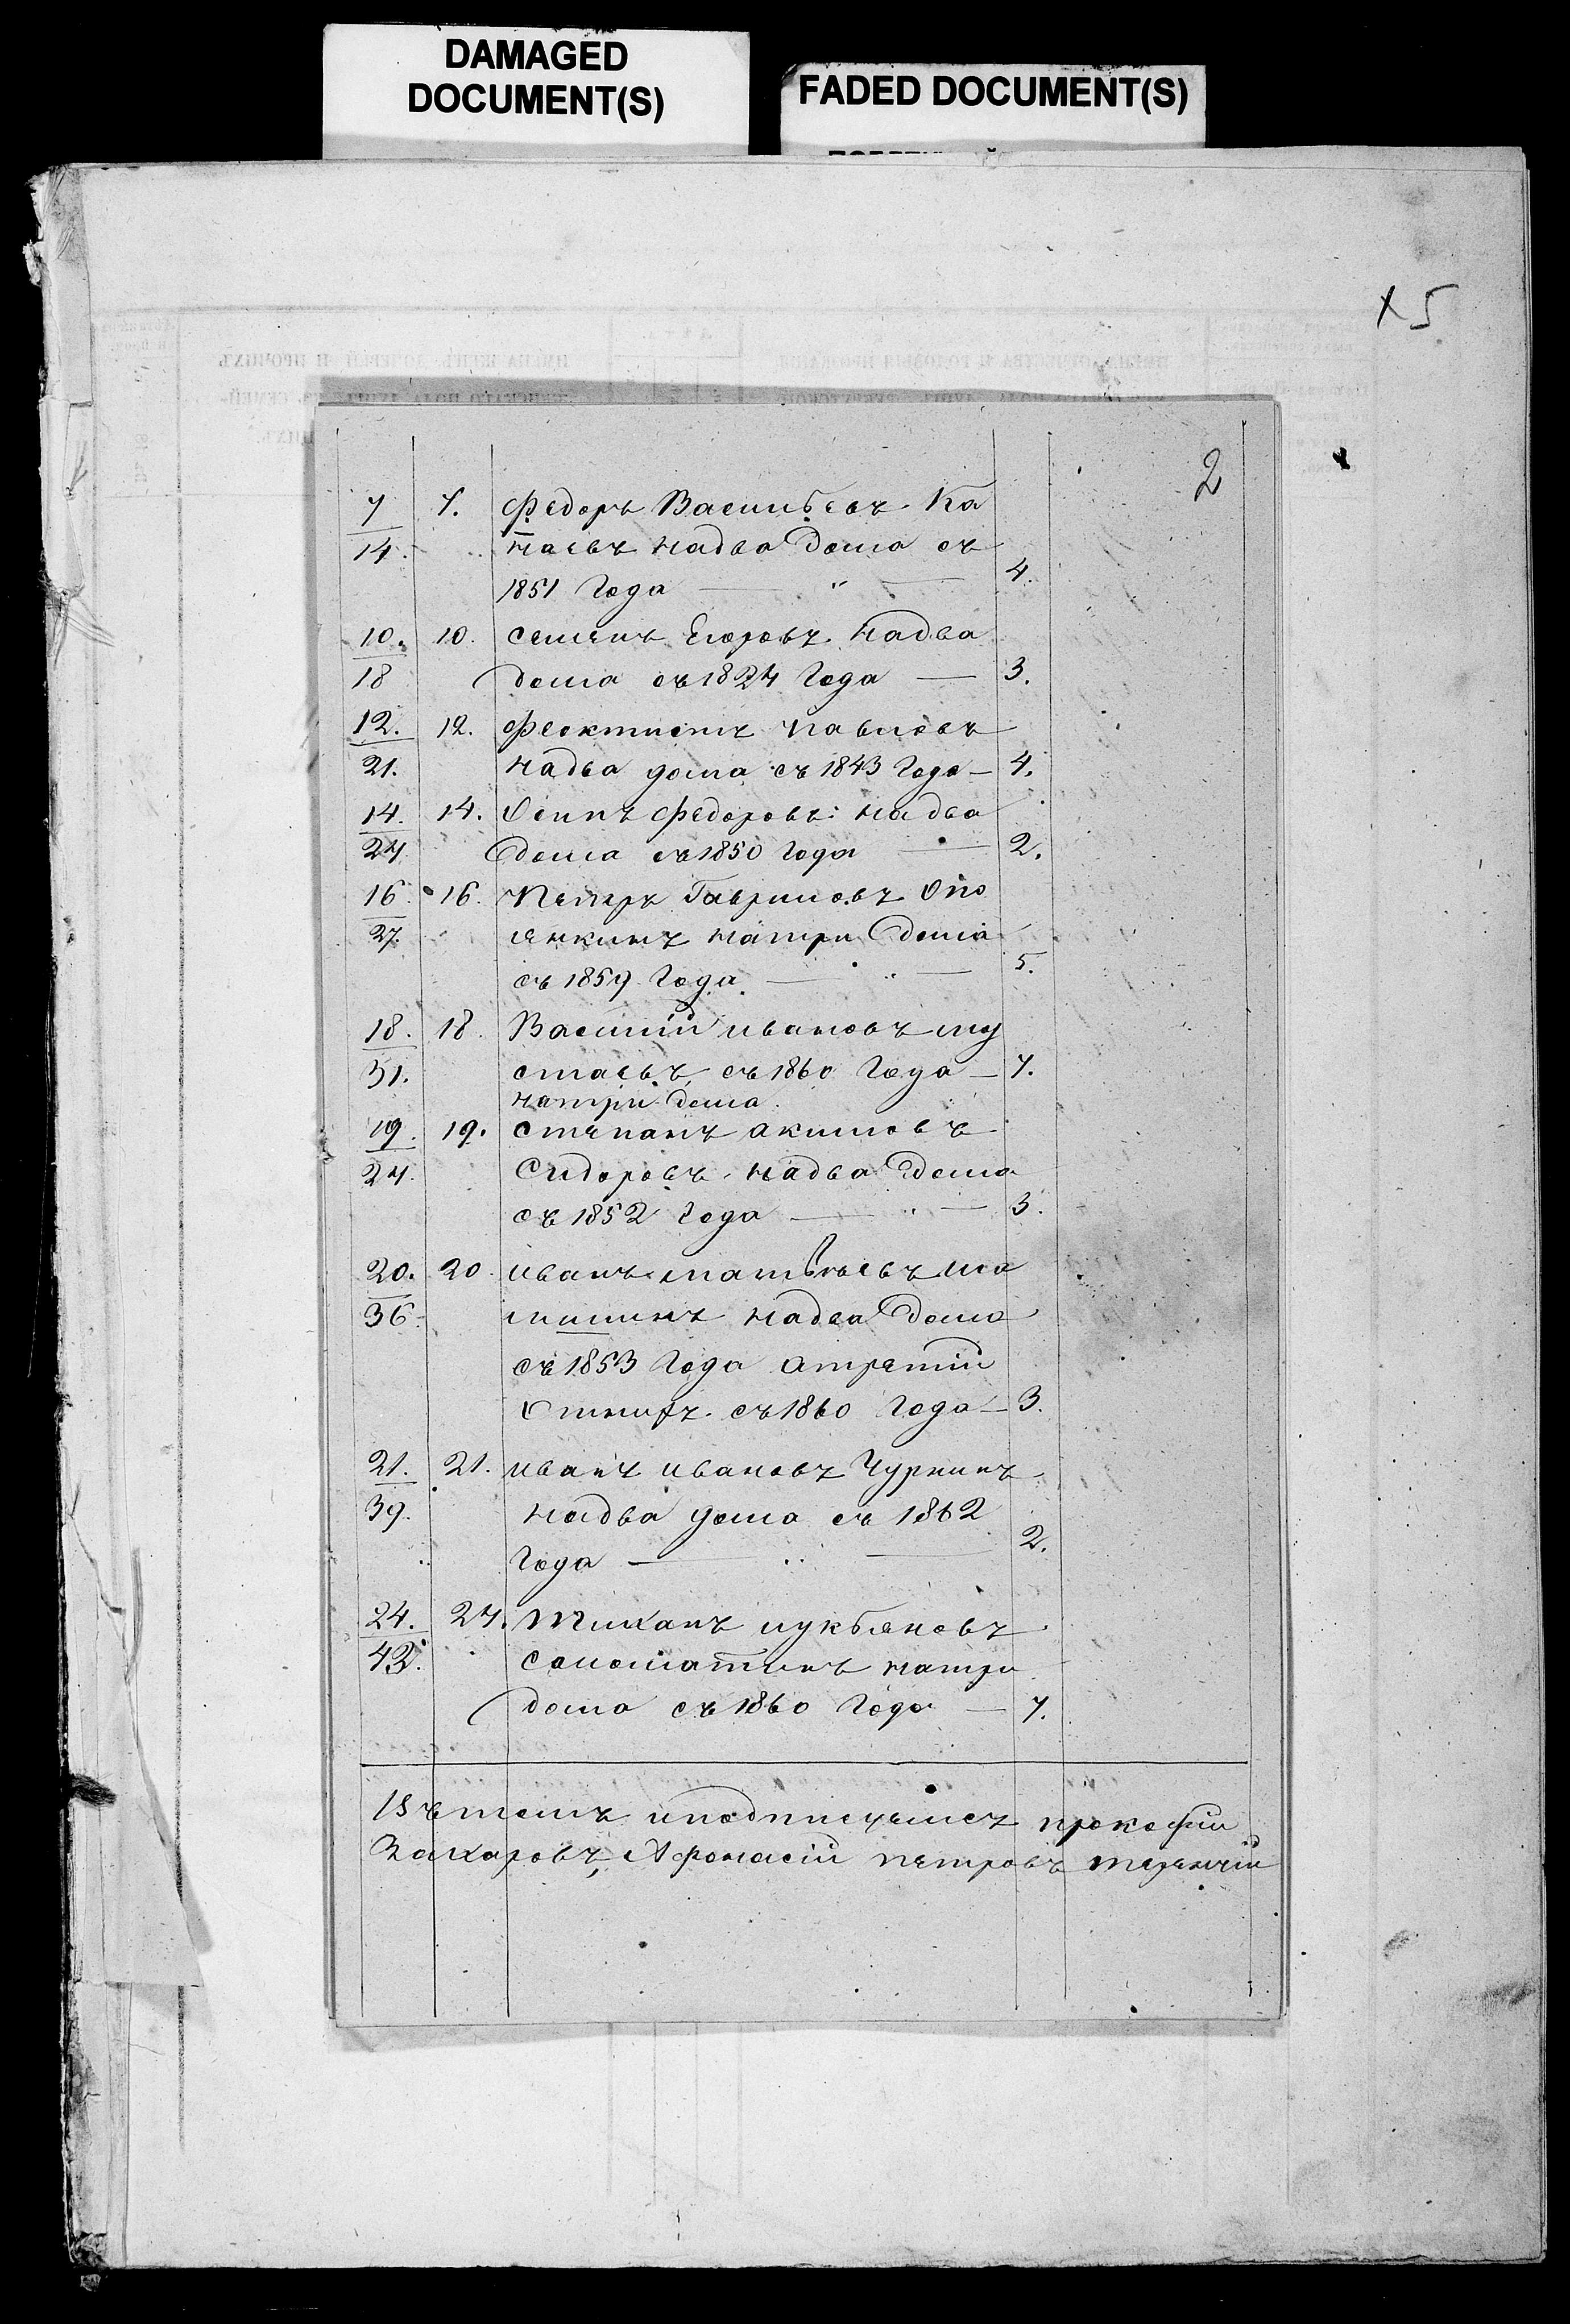 DAMAGED
DOCUMENT(S)
FADED DOCUMENT(S)
х 5
2
7 7. Федоръ Васильевъ Ка
14. наевъ надва дома съ
1851 года — " — 4.
10. 10. Семенъ Егоровъ надва
18 дома съ 1824 года — 3.
12. 12. Феоктистъ павловъ
21. надва дома съ 1843 года — 4.
14. 14. Осипъ Федоровъ надва
24 дома съ 1850 года — 2.
16. 16. Петръ Гавриловъ Опо
27. ленкинъ натри дома
съ 1859 года — " — 5.
18. 18. Василий ивановъ му
31. стаевъ, съ 1860 года — 7.
натри дома
19. 19. степанъ акимовъ
24. Сидоровъ надва дома
съ 1852 года — " — 3.
20. 20. иванъ матвѣевъ ма
36. надва дома
съ 1853 года атретий
съ 1860 года — 3.
21. 21. иванъ ивановъ Чуркинъ
39. надва дома съ 1862
года — " — 2.
24. 24. лукьяновъ
42. соломатинъ натри
дома съ 1860 года — 7.
Вътомъ иподписуемся прокофий
Захаровъ, Афонасий петровъ терентий